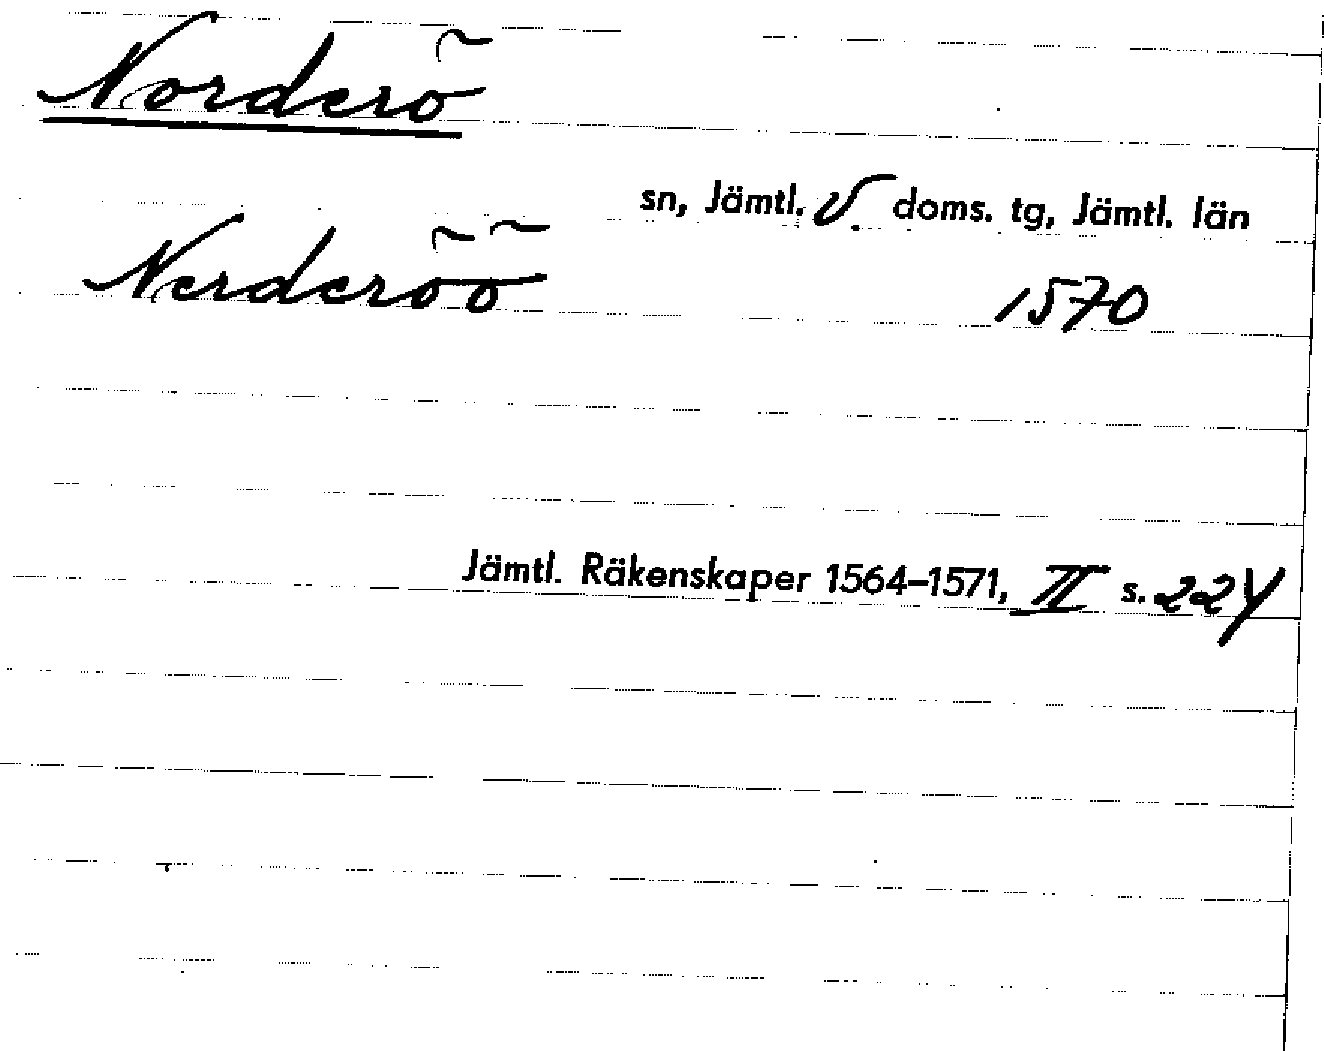 Norderö
sn, Jämtl. V. doms. tg, Jämtl. län
Nerderöö 1570
Jämtl. Räkenskaper 1564–1571, II s. 224